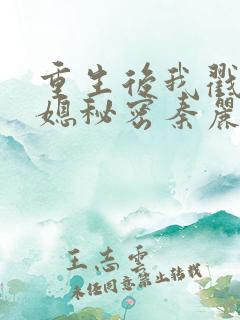 重生后我戳
媳秘密秦丽
王志云
未经同意禁止转载